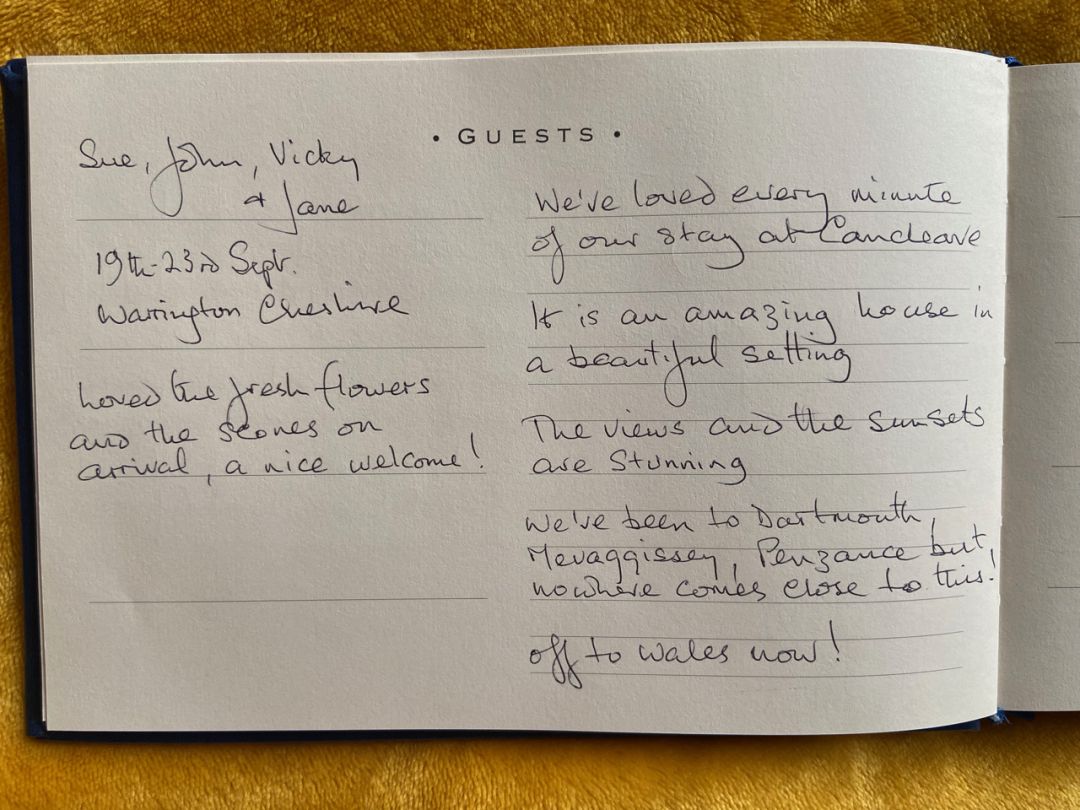 • GUESTS •
Sue, John, Vicky
+ Jane
19th-23rd Sept.
Warrington Cheshire
Loved the fresh flowers
and the scones on
arrival, a nice welcome!
We've loved every minute
of our stay at Cancleave
It is an amazing house in
a beautiful setting
The views and the sunsets
are stunning
We've been to Dartmouth,
Mevaggissey, Penzance but
nowhere comes close to this!
off to Wales now!